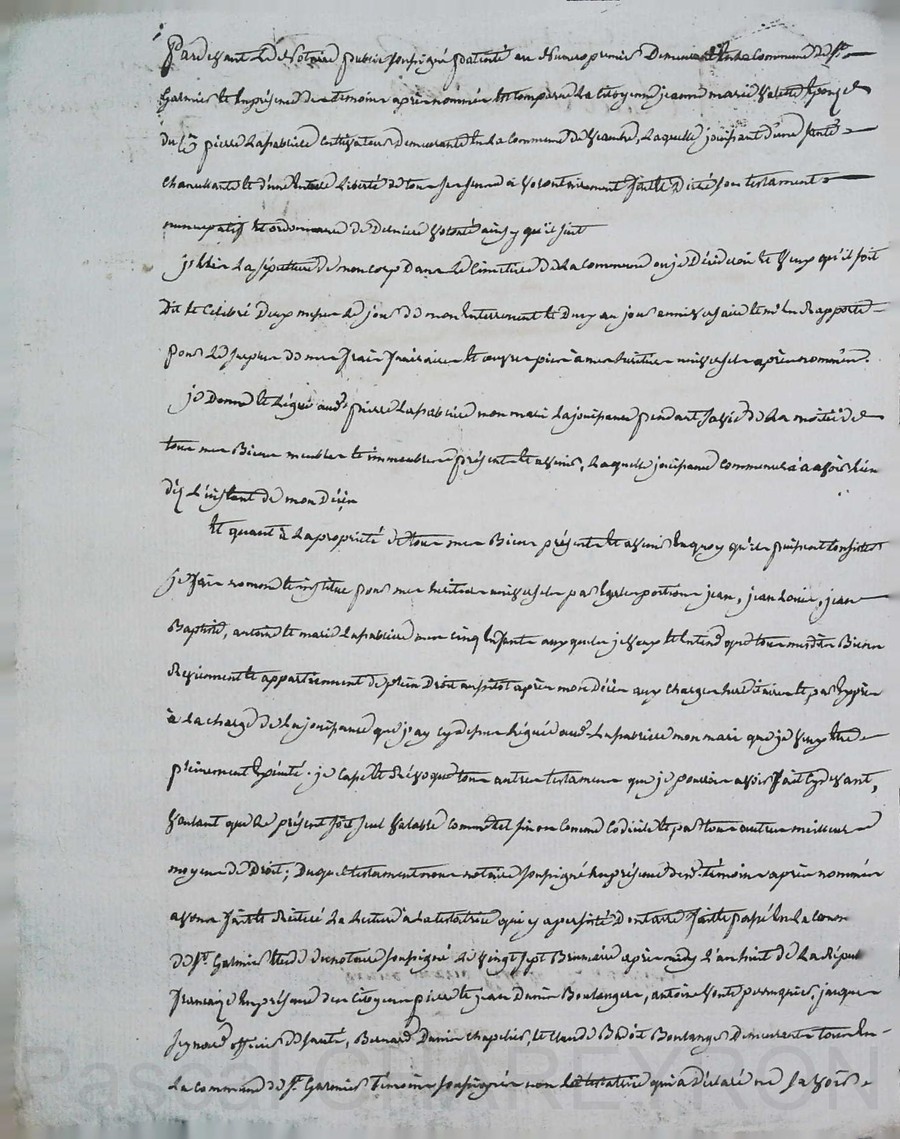 Pardevant Le Notaire public soussigné patenté au Numero premier Demeurant En la Commune de St
Galmier Et En présence des temoins après nommés Est Comparue La citoyenne jeanne marie Epouse
du Cen pierre Lafabrice Cultivateur Demeurante En La Commune de Laquelle jouissant d'une santé
Chancellante Et d'une Entiere Liberté de tous ses sens a Volontairement fait Et Dicté son testament
nuncupatif Et ordonnance de Derniere Volonté ainsy qu'il suit
j'Elis La sépulture de mon corps Dans Le Cimetiere de La Commune ou je Déciderai Et Veux qu'il soit
Dit Et Celebré Deux messes Le jour de mon Enterrement Et Deux au jour anniversaire Et m'En Rapporte
pour Le surplus de mes frais funéraires Et œuvres pies à mes heritiers universels après nommés.
je Donne Et Lègue audt pierre Lafabrice mon mari La jouissance pendant sa vie de La moitié de
tous mes Biens meubles Et immeubles présents Et avenir, Laquelle jouissance Commencera a avoir Lieu
dès L'instant de mon Décès
Et quant à La propriété de tous mes Biens présents Et avenir En quoy qu'ils puissent Consister
je fais nomme Et institue pour mes heritiers universels par Egales portions jean, jean Louis, jean
Baptiste, antoine Et marie Lafabrice mes cinq Enfants auxquels je Veux Et Entend que tous mesdits Biens
Reviennent Et appartiennent de plein Droit aussitot après mon Décès aux charges hereditaires Et par Exprès
à La charge de La jouissance que j'ay cy dessus Léguée audt Lafabrice mon mari que je Veux Etre
pleinement Exécuté. je Casse Et Révoque tous autres testaments que je pourrois avoir fait Cy devant,
Voulant que Le présent soit seul Valable comme tel sinon Comme Codicile Et par tous autres meilleurs
moyens de Droit; Duquel testament nous notaire soussigné En présence desdts témoins après nommés
avons fait Et Réitéré La Lecture à La testatrice qui y a persisté Dont acte fait Et passé En La Comne
de St Galmier Etude du notaire soussigné Le Vingt sept Brumaire après midy L'an huit de La Répub
française En présence des Citoyens pierre Et jean Danis Boulangers, antoine perruquier, jacques
officier de santé, Bernard Danis chapelier, Et Claude Boulanger Demeurants tous En
La Commune de St Galmier Témoins soussignés non La testatrice qui a Déclaré ne savoir